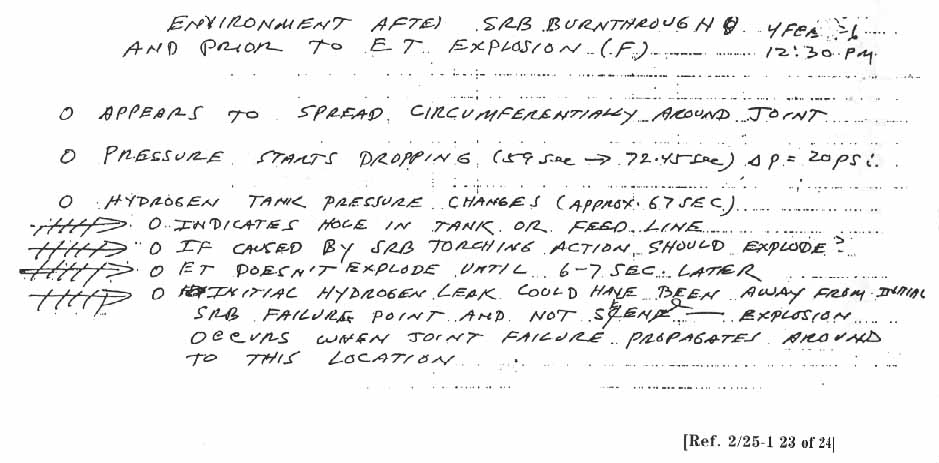 ENVIRONMENT AFTER SRB BURNTHROUGH 4 FEB 86
AND PRIOR TO ET EXPLOSION (F) 12:30 PM
O APPEARS TO SPREAD CIRCUMFERENTIALLY AROUND JOINT
O PRESSURE STARTS DROPPING (59 sec → 72.45 sec) Δ p = 20 psi.
O HYDROGEN TANK PRESSURE CHANGES (APPROX. 67 SEC)
O INDICATES HOLE IN TANK OR FEED LINE
O IF CAUSED BY SRB TORCHING ACTION, SHOULD EXPLODE?
O ET DOESN'T EXPLODE UNTIL 6-7 SEC. LATER
O INITIAL HYDROGEN LEAK COULD HAVE BEEN AWAY FROM INITIAL
SRB FAILURE POINT AND NOT — EXPLOSION
OCCURS WHEN JOINT FAILURE PROPAGATES AROUND
TO THIS LOCATION.
[Ref. 2/25-1 23 of 24]